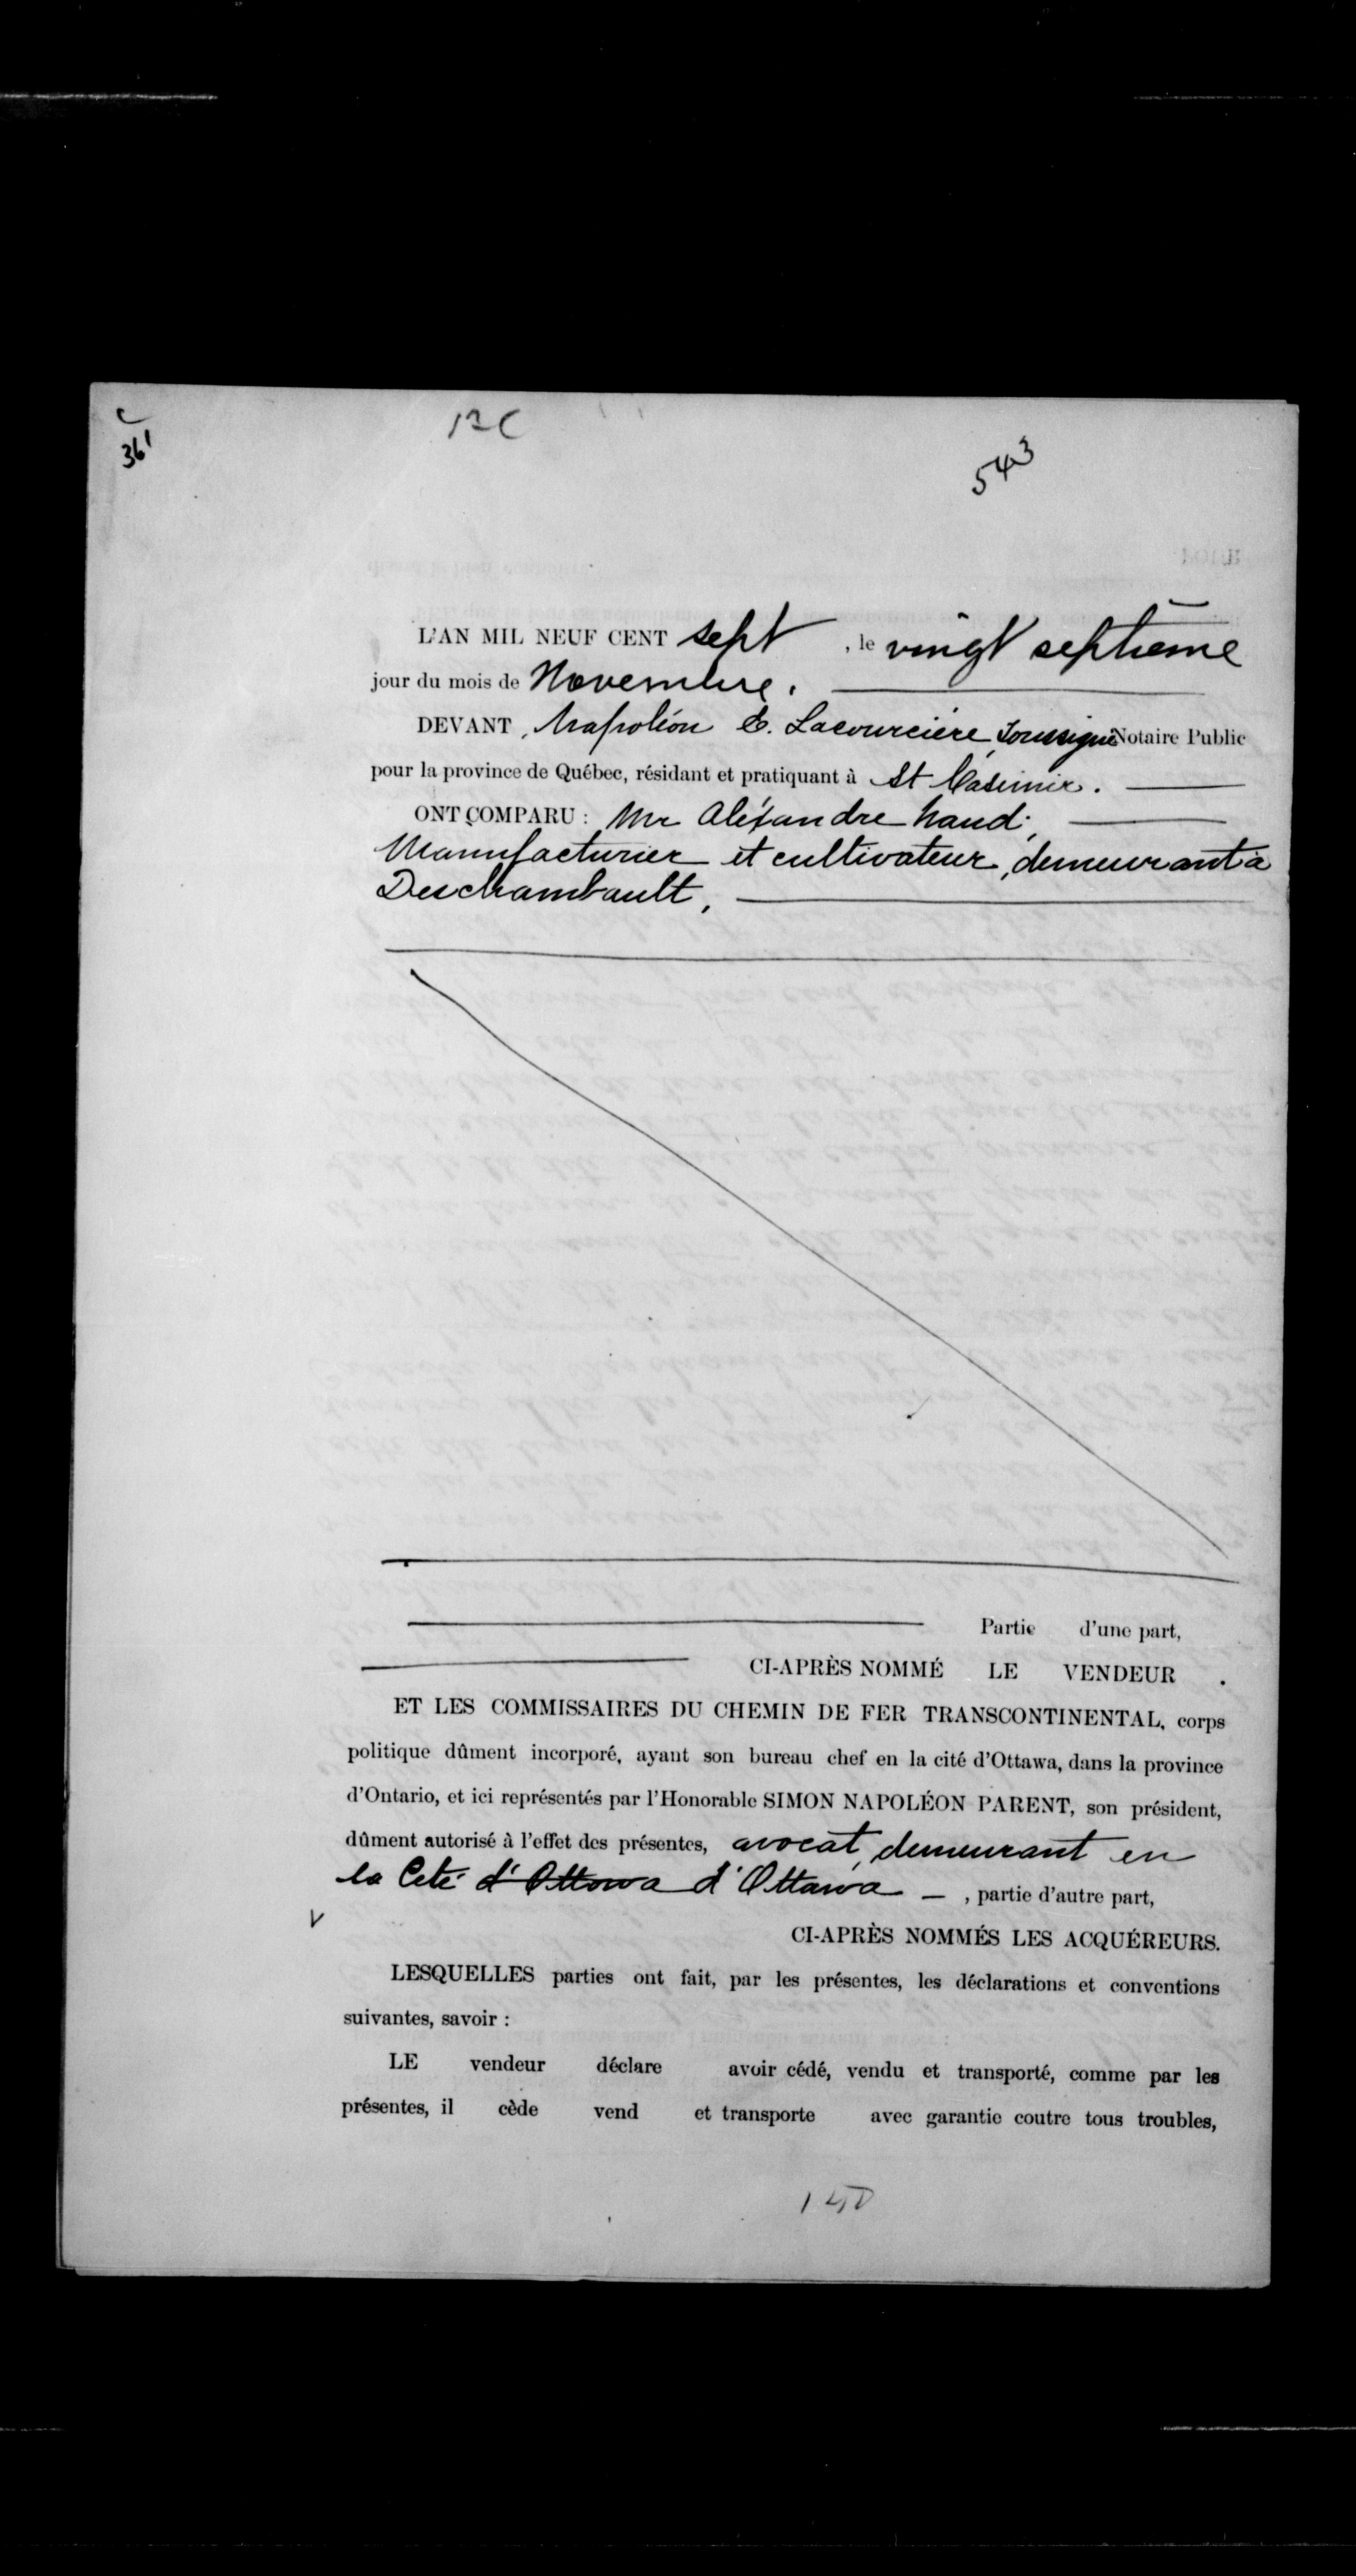 12C
361
543
L'AN MIL NEUF CENT sept , le vingt septième
jour du mois de Novembre.
DEVANT, Napoléon E. Lacourcière, Soussigné Notaire Public
pour la province de Québec, résidant et pratiquant à St Casimir.
ONT COMPARU : Mr Aléxandre Naud,
Manufacturier et cultivateur, demeurant à
Deschambault,
Partie d'une part,
CI-APRÈS NOMMÉ LE VENDEUR .
ET LES COMMISSAIRES DU CHEMIN DE FER TRANSCONTINENTAL, corps
politique dûment incorporé, ayant son bureau chef en la cité d'Ottawa, dans la province
d'Ontario, et ici représentés par l'Honorable SIMON NAPOLÉON PARENT, son président,
dûment autorisé à l'effet des présentes, avocat, demeurant en
la Cité d'Ottowa d'Ottawa — , partie d'autre part,
CI-APRÈS NOMMÉS LES ACQUÉREURS.
LESQUELLES parties ont fait, par les présentes, les déclarations et conventions
suivantes, savoir :
LE vendeur déclare avoir cédé, vendu et transporté, comme par les
présentes, il cède vend et transporte avec garantie coutre tous troubles,